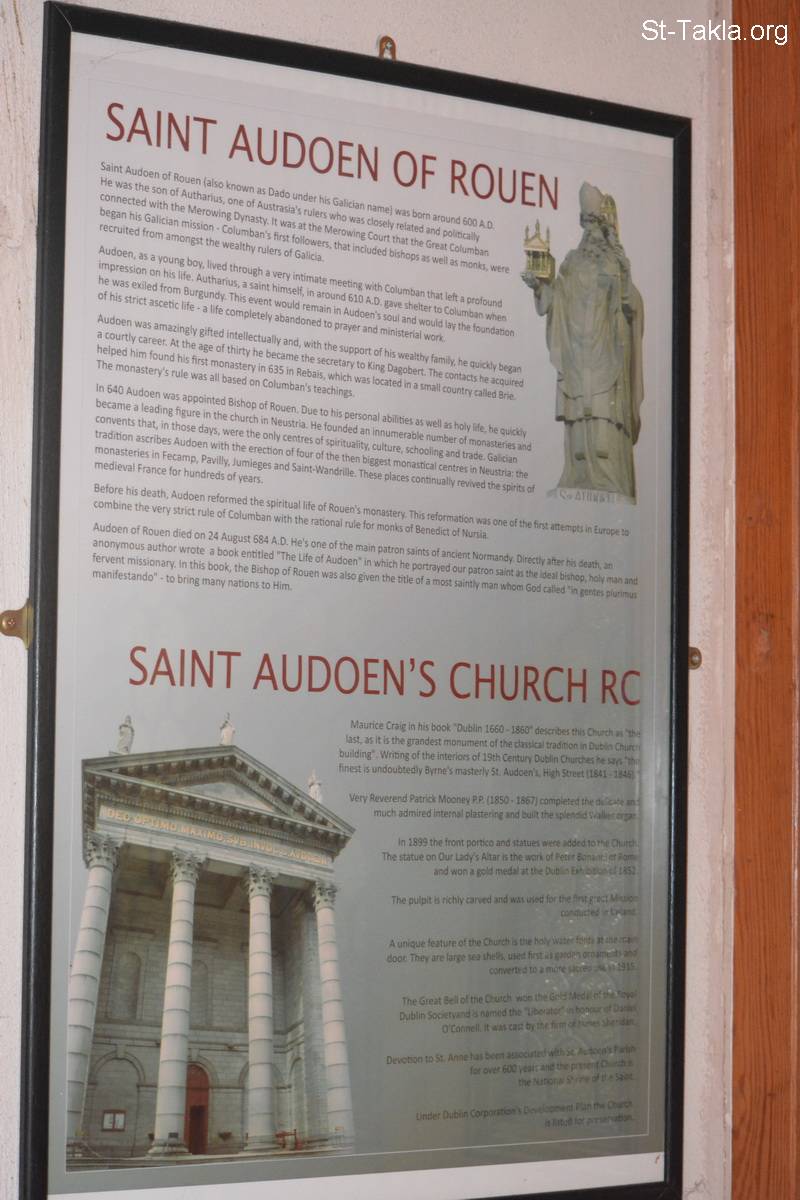 St-Takla.org
SAINT AUDOEN OF ROUEN
Saint Audoen of Rouen (also known as Dado under his Galician name) was born around 600 A.D.
He was the son of Autharius, one of Austrasia's rulers who was closely related and politically
connected with the Merowing Dynasty. It was at the Merowing Court that the Great Columban
began his Galician mission - Columban's first followers, that included bishops as well as monks, were
recruited from amongst the wealthy rulers of Galicia.
Audoen, as a young boy, lived through a very intimate meeting with Columban that left a profound
impression on his life. Autharius, a saint himself, in around 610 A.D. gave shelter to Columban when
he was exiled from Burgundy. This event would remain in Audoen's soul and would lay the foundation
of his strict ascetic life - a life completely abandoned to prayer and ministerial work.
Audoen was amazingly gifted intellectually and, with the support of his wealthy family, he quickly began
a courtly career. At the age of thirty he became the secretary to King Dagobert. The contacts he acquired
helped him found his first monastery in 635 in Rebais, which was located in a small country called Brie.
The monastery's rule was all based on Columban's teachings.
In 640 Audoen was appointed Bishop of Rouen. Due to his personal abilities as well as holy life, he quickly
became a leading figure in the church in Neustria. He founded an innumerable number of monasteries and
convents that, in those days, were the only centres of spirituality, culture, schooling and trade. Galician
tradition ascribes Audoen with the erection of four of the then biggest monastical centres in Neustria: the
monasteries in Fecamp, Pavilly, Jumieges and Saint-Wandrille. These places continually revived the spirits of
medieval France for hundreds of years.
Before his death, Audoen reformed the spiritual life of Rouen's monastery. This reformation was one of the first attempts in Europe to
combine the very strict rule of Columban with the rational rule for monks of Benedict of Nursia.
Audoen of Rouen died on 24 August 684 A.D. He's one of the main patron saints of ancient Normandy. Directly after his death, an
anonymous author wrote a book entitled "The Life of Audoen" in which he portrayed our patron saint as the ideal bishop, holy man and
fervent missionary. In this book, the Bishop of Rouen was also given the title of a most saintly man whom God called "in gentes plurimus
manifestando" - to bring many nations to Him.
SAINT AUDOEN'S CHURCH RC
Maurice Craig in his book "Dublin 1660 - 1860" describes this Church as "the
last, as it is the grandest monument of the classical tradition in Dublin Church
building". Writing of the interiors of 19th Century Dublin Churches he says "the
finest is undoubtedly Byrne's masterly St. Audoen's, High Street (1841 - 1846)."
Very Reverend Patrick Mooney P.P. (1850 - 1867) completed the delicate and
much admired internal plastering and built the splendid Walker organ.
In 1899 the front portico and statues were added to the Church.
The statue on Our Lady's Altar is the work of Peter Bonanni of Rome
and won a gold medal at the Dublin Exhibition of 1852.
The pulpit is richly carved and was used for the first great Mission
conducted in Ireland.
A unique feature of the Church is the holy water fonts at the main
door. They are large sea shells, used first as garden ornaments and
converted to a more sacred use in 1915.
The Great Bell of the Church won the Gold Medal of the Royal
Dublin Societyand is named the "Liberator" in honour of Daniel
O'Connell. It was cast by the firm of James Sheridan.
Devotion to St. Anne has been associated with St. Audoen's Parish
for over 600 years and the present Church is
the National Shrine of the Saint.
Under Dublin Corporation's Development Plan the Church
is listed for preservation.
DEO OPTIMO MAXIMO SUB INVOC. S. AUDOENI